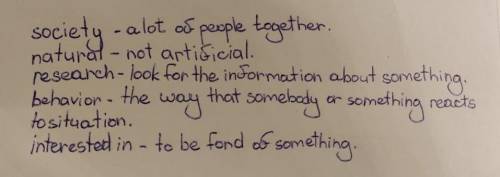 society - a lot of people together.
natural - not artificial.
research - look for the information about something.
behavior - the way that somebody or something reacts
to situation.
interested in - to be fond of something.